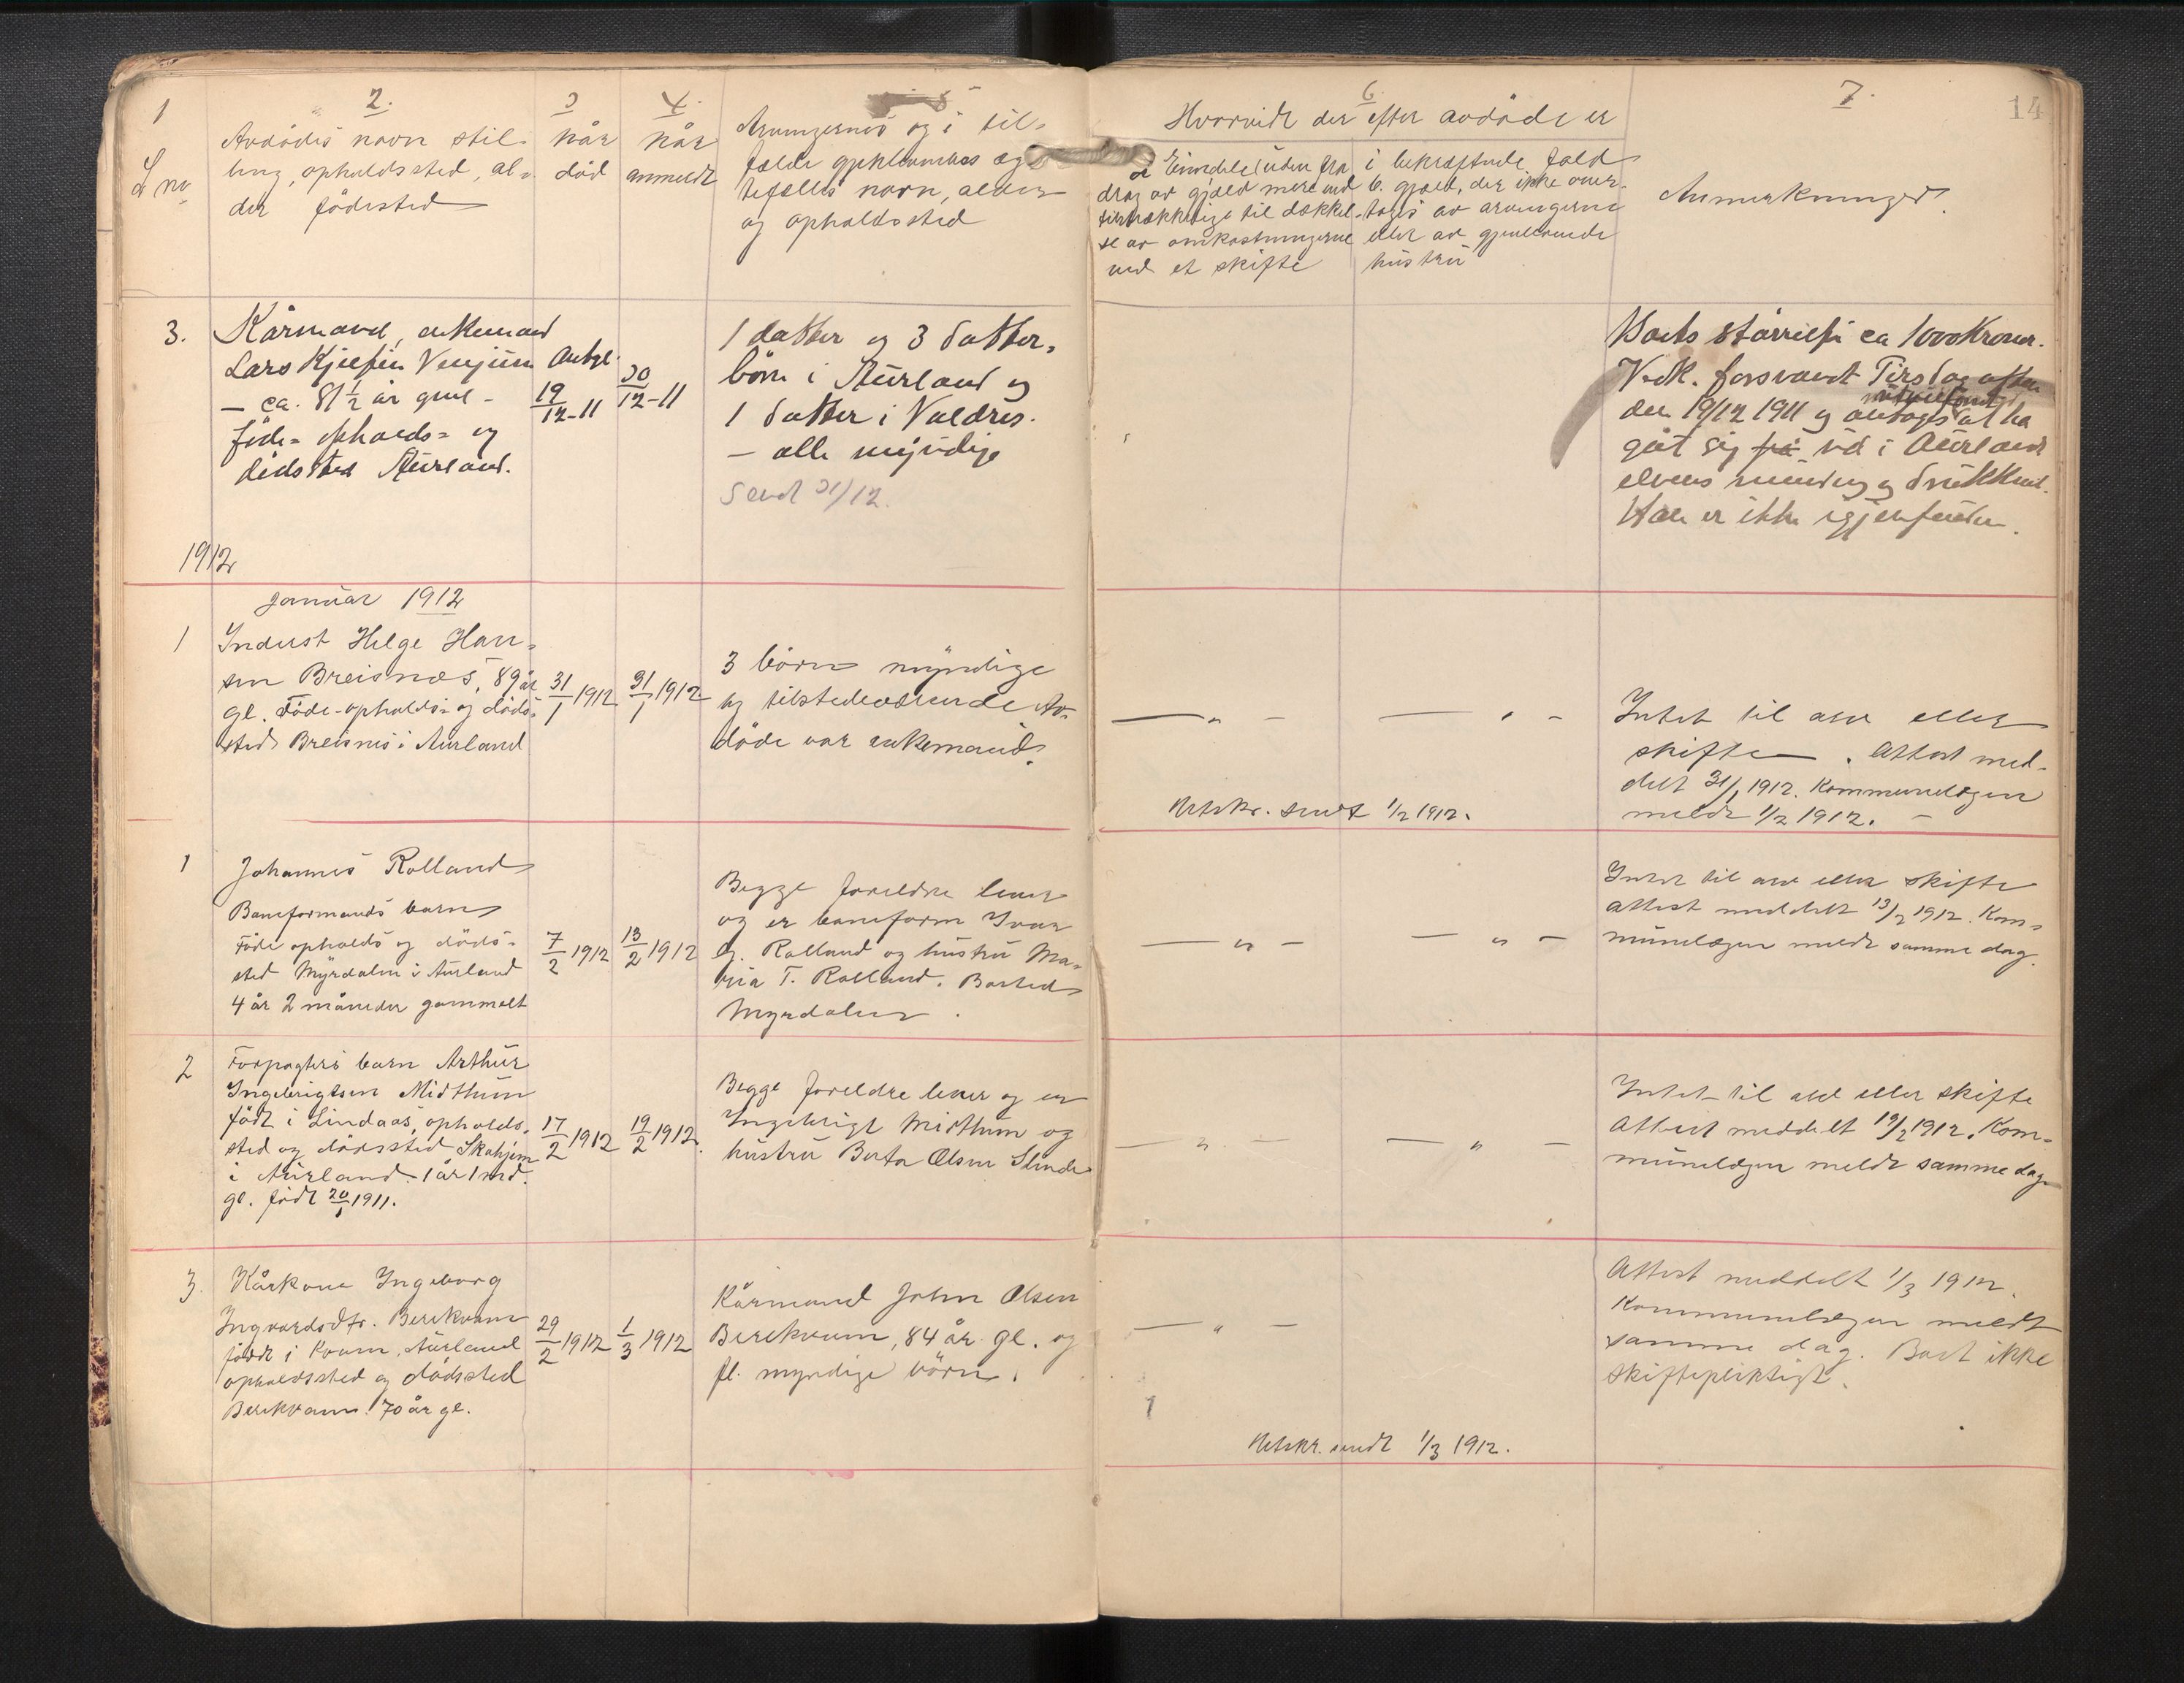 1
L no
2.
Avdödes navn stil-
ling, opholdssted, al-
der födested
3
Når
död
4.
Når
anmeldt
5
Arvingernes og i til-
fælde gjenlevendes æg-
tefælles navn, alder
og opholdssted
6.
Hvorvidt der efter avdöde er
a Eiendele (uden fra
drag av gjæld mere end
tilstrækkelige til dækkel-
se av omkostningerne
ved et skifte
i bekræftende fald
b. gjæld, der ikke over-
tages av arvingerne
eller av gjenlevende
hustru
7.
Anmerkninger.
14
3.
Kårmand, enkemand
Lars Kjelsen Venjum
- ca. 81 1/2 år gml -
föde- opholds- og
dödssted Aurland.
Antgl.
19/12-11
30/12-11
1 datter og 3 datter-
börn i Aurland og
1 datter i Valdres.
- alle myndige
Sendt 31/12.
Boets störrelse ca 1000 Kroner.
Vedk. forsvandt Tirsdag aften
den 19/12 1911 og antages at ha
gåt sig på ud i Aurlands
elvens munding og druknet.
Han er ikke igjenfunden.
1912
Januar 1912
1
Inderst Helge Han-
sen Breisnes, 89 år
gl. Föde- opholds- og döds-
sted Breisnes i Aurland
31/1 1912
31/1 1912
3 börn myndige
og tilstedeværende Av-
döde var enkemand.
— „ —
— „ —
Intet til arv eller
skifte. Attest med-
delt 31/1 1912. Kommunelægen
meldt 1/2 1912. —
Utskr. sendt 1/2 1912.
1
Johannes Rolland
Baneformands barn
Föde opholds og döds-
sted Myrdalen i Aurland
4 år 2 måneder gammelt
7/2 1912
13/2 1912
Begge foreldre lever
og er baneform Ivar
Rolland og hustru Ma-
ria T. Rolland. Bosted
Myrdalen.
— „ —
— „ —
Intet til arv eller skifte
attest meddelt 13/2 1912. Kom-
munelægen meldt samme dag.
2
Forpagters barn Arthur
Ingebrigtsen Midthun
födt i Lindaas, opholds-
sted og dödssted Skahjem
i Aurland 1 år 1 md.
gl. födt 20/1 1911.
17/2 1912
19/2 1912.
Begge foreldre lever og er
Ingebrigt Midthun og
hustru Berta Olsen Slinde
— „ —
— „ —
Intet til arv eller skifte
Attest meddelt 19/2 1912. Kom-
munelægen meldt samme dag.
3.
Kårkone Ingeborg
Ingvardsdtr. Berekvam
födt i Kvam, Aurland
opholdssted og dödssted
Berekvam. 70 år gl.
29/2 1912
1/3 1912
Kårmand John Olsen
Berekvam, 84 år gl. og
fl. myndige börn.
— „ —
Attest meddelt 1/3 1912.
Kommunelægen meldt
samme dag. Boet ikke
skiftepliktigt.
Utskr. sendt 1/3 1912.